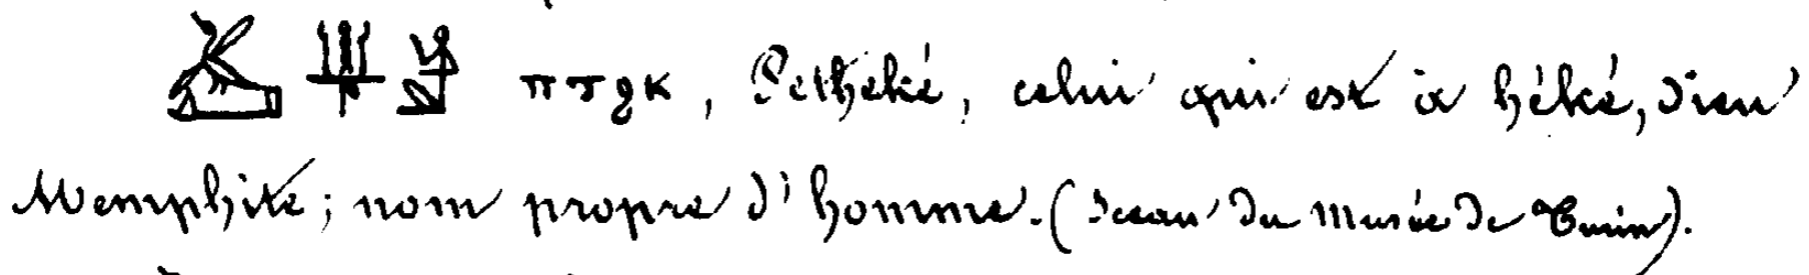 ⲡⲧϩⲕ, Petheké, celui qui est à héké, dieu
Memphite; nom propre d'homme. (sceau du Musée de Turin).